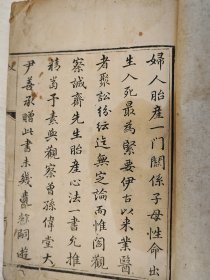 婦人胎産一門關係子母性命出
生入死最為緊要伊古以來業醫
者聚訟紛紜迄無定論而惟閻觀
察誠齋先生胎産心法一書允推
精當予素與觀察曾孫偉堂大
尹善承贈此書未幾